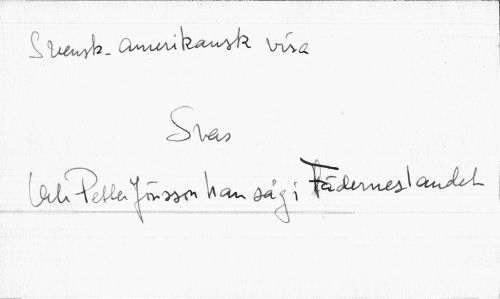 Svensk-amerikansk visa
Svar
Och Petter Jönsson han såg i Fäderneslandet